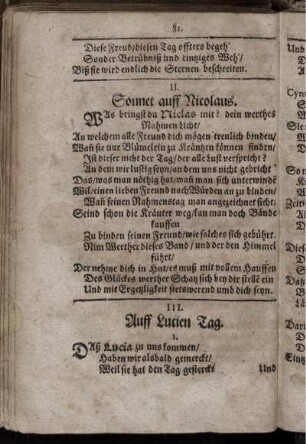 81.
Diese Freud/diesen Tag offters begeh'
Sonder Betrübniß und eintziges Weh'/
Biß sie wird endlich die Sternen beschreiten.
II.
Sonnet auff Nicolaus.
WAs bringst du Niclas mit? dein werthes
Nahmen licht/
An welchem alle Freund dich mögen treulich binden/
Wañ sie nur Blümelein zu Kräntzen können finden/
Ist dieser nicht der Tag/der alle Lust verspricht?
An dem wir lustig seyn/an dem uns nicht gebricht
Das/was man nöthig hat/man man sich unterwinde
Wil/einen lieben Freund nach Würden an zu binden/
Wañ seinen Nahmenstag man angezeichnet sicht:
Seind schon die Kräuter weg/kan man doch Bände
kauffen
Zu binden seinen Freund/wie solches sich gebührt.
Nim Werther dieses Band/ und der den Himmel
führt/
Der nehme dich in Hut/es muß mit vollem Hauffen
Des Glückes werther Schatz sich bey dir stelle ein
Und mit Ergetzligkeit stetswerend umd dich seyn.
III.
Auff Lucien Tag.
1.
DAß Lucia zu uns kommen/
Haben wir alsbald gemerckt/
Weil sie hat den Tag gesterckt
Und